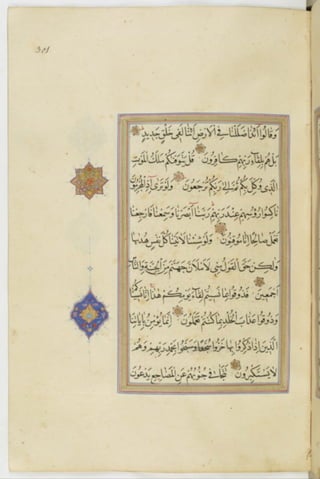 وقالوا أئذا ضللنا في الأرض أئنا لفي خلق جديد
بل هم بلقاء ربهم كافرون قل يتوفيكم ملك الموت
الذي وكل بكم ثم إلى ربكم ترجعون ولو ترى إذ المجرمون
ناكسوا رؤسهم عند ربهم ربنا أبصرنا وسمعنا فارجعنا
نعمل صالحا إنا موقنون ولو شئنا لآتينا كل نفس هديها
ولكن حق القول مني لأملأن جهنم من الجنة والناس
أجمعين فذوقوا بما نسيتم لقاء يومكم هذا إنا نسيناكم
وذوقوا عذاب الخلد بما كنتم تعملون إنما يؤمن بآياتنا
الذين إذا ذكروا بها خروا سجدا وسبحوا بحمد ربهم وهم
لا يستكبرون تتجافى جنوبهم عن المضاجع يدعون